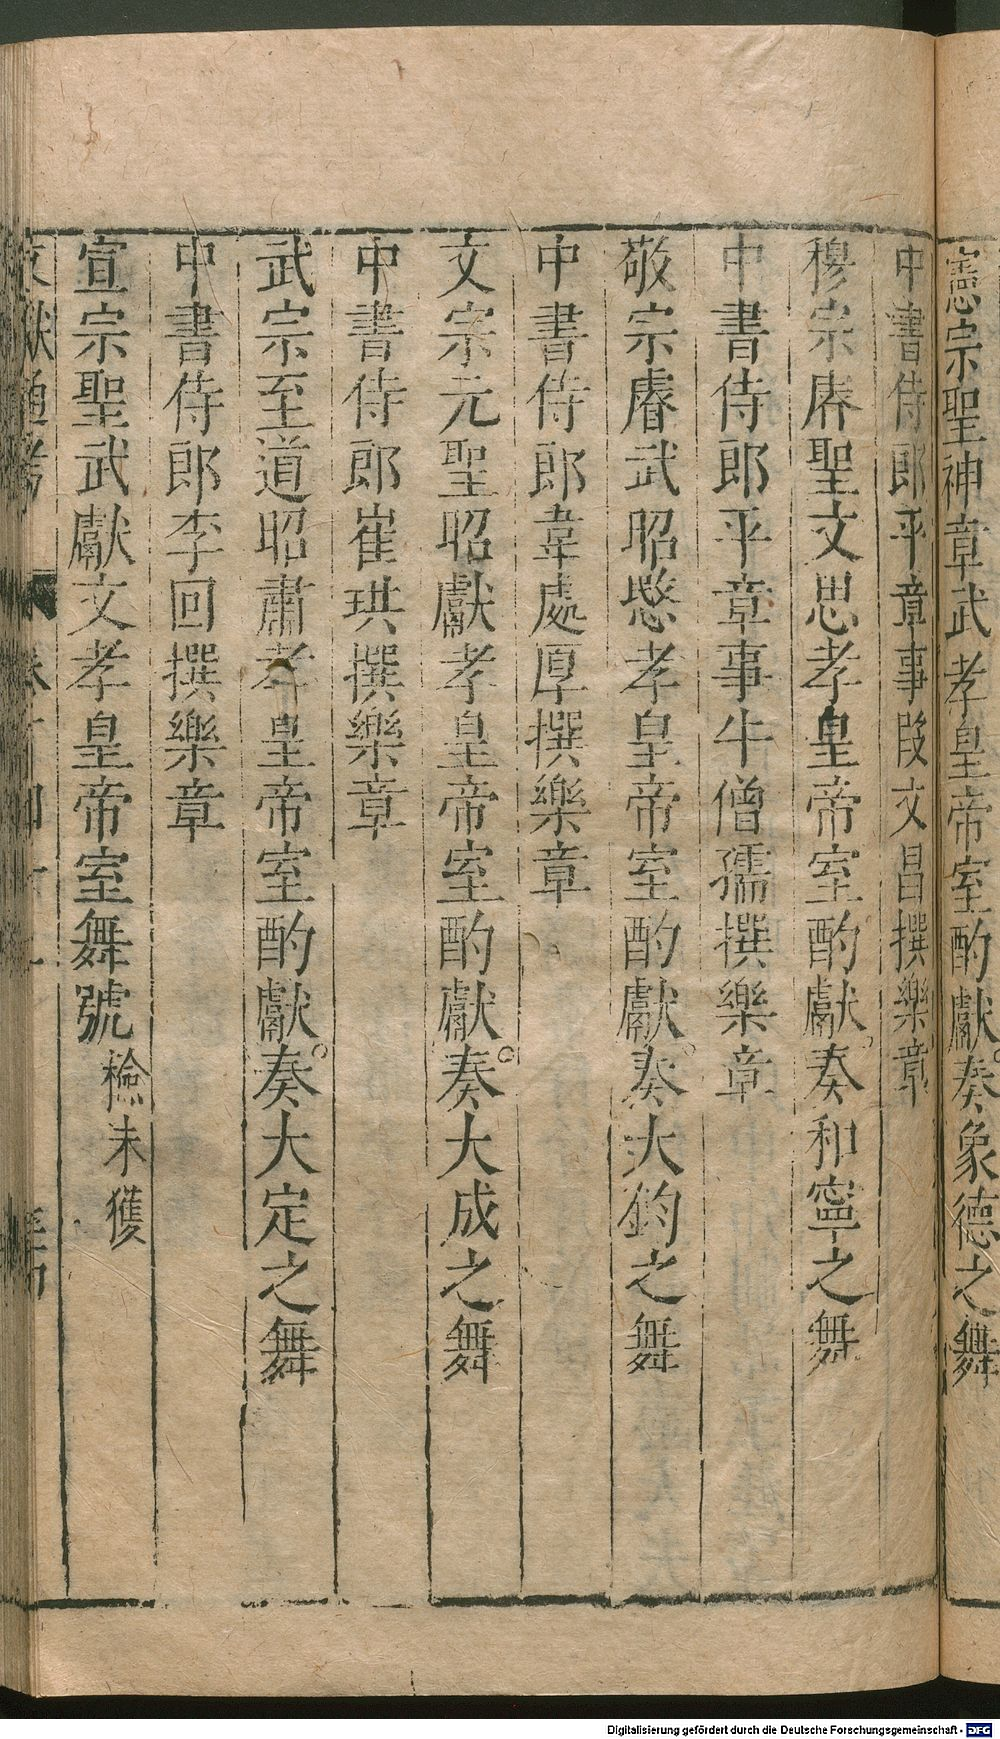 憲宗聖神章武孝皇帝室酌獻。奏象德之舞
中書侍郎平章事段文昌撰樂章
穆宗睿聖文思孝皇帝室酌獻。奏和寧之舞
中書侍郎平章事牛僧孺撰樂章
敬宗睿武昭愍孝皇帝室酌獻。奏大鈞之舞
中書侍郎韋處厚撰樂章
文宗元聖昭獻孝皇帝室酌獻。奏大成之舞
中書侍郎崔珙撰樂章
武宗至道昭肅孝皇帝室酌獻。奏大定之舞
中書侍郎李回撰樂章
宣宗聖武獻文孝皇帝室舞號檢未獲
文獻通考
Digitalisierung gefördert durch die Deutsche Forschungsgemeinschaft - DFG